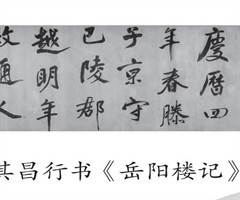 慶曆四
年春滕
子京守
巴陵郡
越明年
政通人
其昌行书《岳阳楼记》